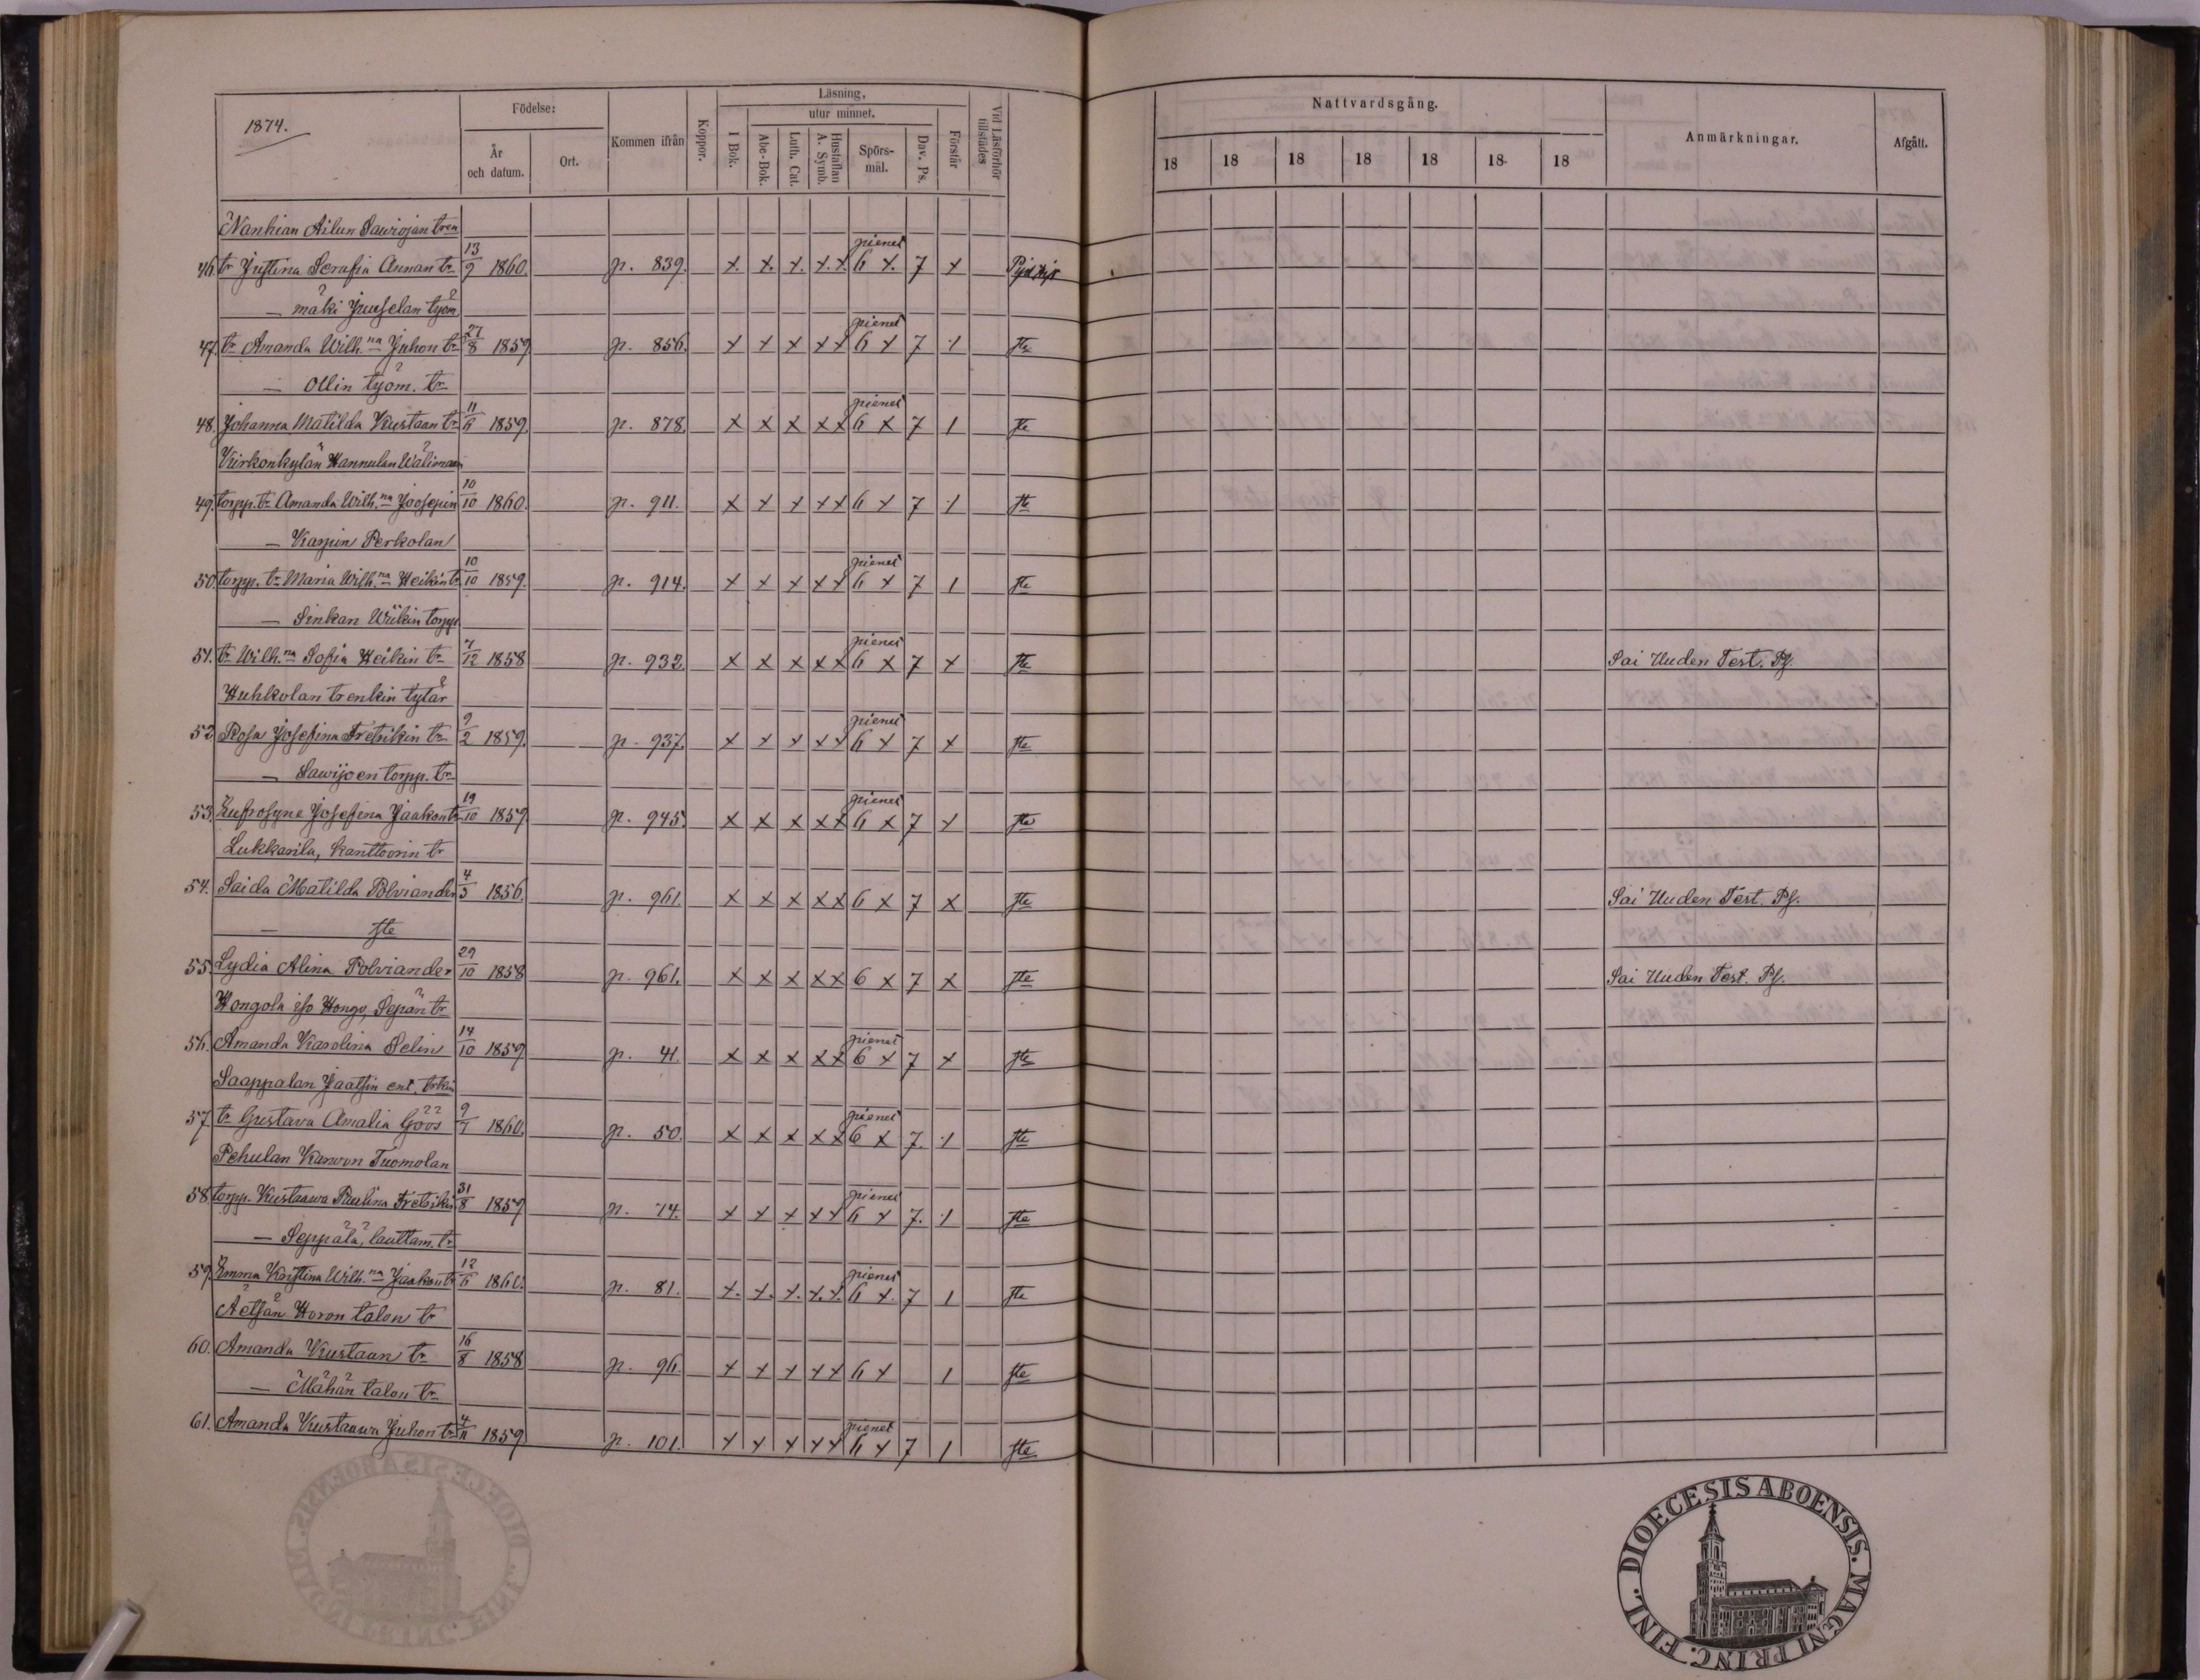 1874.
Födelse:
År och datum.
Ort.
Kommen ifrån
Koppor.
Läsning,
utur minnet.
I Bok.
Abc-Bok.
Luth. Cat.
Hustaflan A. Symb.
Spörs-mål.
Dav. Ps.
Förstår
Vid Läsförhör tillstädes
Nattvardsgång.
18 18 18 18 18 18 18
Anmärkningar.
Afgått.
Nanhian Ailun Sawiojan tren
46. tr Justina Serafia Annan tr 13/9 1860. p. 839. x. x. x. x. x pienet 6 x. 7 x
— mäki Juuselan työm
47. tr Amanda Wilh.na Juhon tr 27/8 1859 p. 856. x x x x x pienet 6 x 7 1 ste
— Ollin työm. tr
48. Johanna Matilda Kustaan tr 11/6 1859. p. 878. x x x x x pienet 6 x 7 1 ste
Kirkonkylän Hannulan Wälimaan
49. torpp. tr Amanda Wilh.na Joosepin 10/10 1860. p. 911. x x x x x 6 x 7 1 ste
— Karpin Perkolan
50. torpp. tr Maria Wilh.na Heikin tr 10/10 1859. p. 914. x x x x x pienet 6 x 7 1 ste
— Sinkan Wiikin torpp
51. tr Wilh.na Sofia Heikin tr 7/12 1858 p. 932. x x x x x pienet 6 x 7 x ste Sai Uuden Test. Ps.
Huhkolan trenkin tytär
52 Rosa Josefina Fretrikin tr 9/2 1859. p. 937. x x x x x pienet 6 x 7 x ste
— Sawijoen torpp. tr
53. Eufrosyne Josefina Jaakon tr 19/10 1859 p. 945. x x x x x pienet 6 x 7 x ste
Lukkarila, kanttoorin tr
54. Saida Matilda Polviander 4/5 1856. p. 961. x x x x x 6 x 7 x ste Sai Uuden Test. Ps.
— ste
55. Lydia Alina Polviander 29/10 1858 p. 961. x x x x x 6 x 7 x ste Sai Uuden Test. Ps.
Hongola iso Hongo, Sepän tr
56. Amanda Karolina Selin 14/10 1859 p. 41. x x x x x pienet 6 x 7 x ste
Saappalan Jaatsin ent. trkin
57 tr Gustava Amalia Göös 9/1 1860. p. 50. x x x x x pienet 6 x 7. 1 ste
Pehulan Karwon Tuomolan
58 torpp. Kustaawa Paulina Fretrikin 31/8 1859 p. 74. x x x x x pienet 6 x 7. 1 ste
— Seppälä, lauttam. tr
59. Emma Kristina Wilh.na Jaakon tr 12/6 1860. p. 81. x. x. x. x. x. pienet 6 x. 7 1 ste
Aetsän Horon talon tr
60. Amanda Kustaan tr 16/8 1858 p. 96. x x x x x 6 x 1 ste
— Mähän talon tr
61. Amanda Kustaawa Juhon tr 4/11 1859 p. 101. x x x x x pienet 6 x 7 1 ste
DIOECESIS ABOENSIS. MAGNI PRINC. FINL.